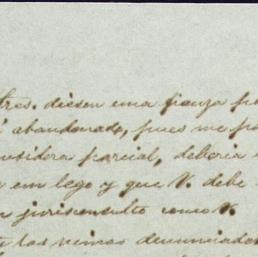 tros. diesen una fianza
abandonado, pues me
parcial, deberia
en lego y que V. debe
jurisconsulto como V.
las mimas denunciado